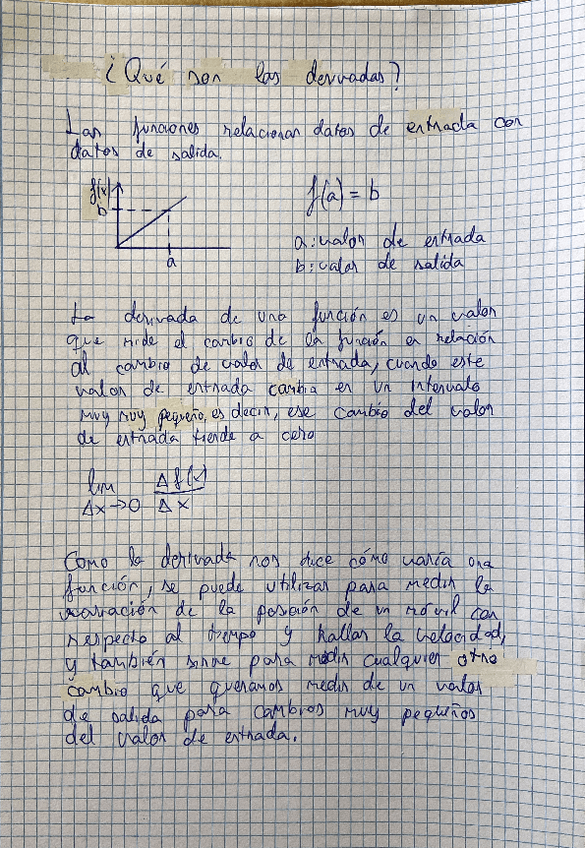 ¿Qué son las derivadas?
Las funciones relacionan datos de entrada con
datos de salida.
f(x)
b
a
f(a) = b
a: valor de entrada
b: valor de salida
La derivada de una función es un valor
que mide el cambio de la función en relación
al cambio de valor de entrada, cuando este
valor de entrada cambia en un intervalo
muy muy pequeño, es decir, ese cambio del valor
de entrada tiende a cero
lim Δf(x)
Δx→0 Δx
Como la derivada nos dice cómo varía una
función, se puede utilizar para medir la
variación de la posición de un móvil con
respecto al tiempo y hallar la velocidad,
y también sirve para medir cualquier otro
cambio que queramos medir de un valor
de salida para cambios muy pequeños
del valor de entrada.